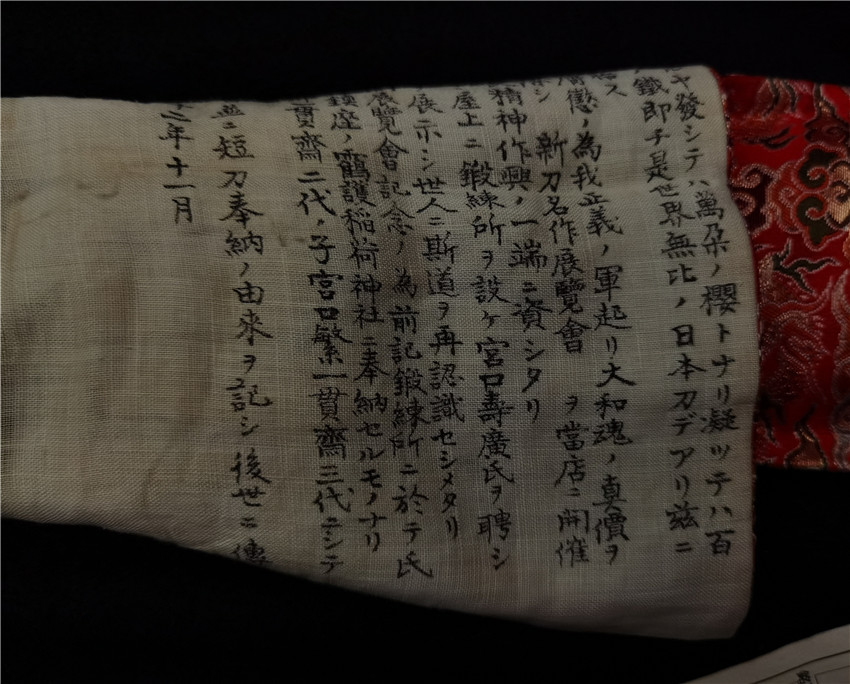 發シテハ萬朶ノ櫻トナリ凝ツテハ百
鐵即チ是世界無比ノ日本刀デアリ茲ニ
ス
膺懲ノ為我正義ノ軍起リ大和魂ノ真價ヲ
シ 新刀名作展覽會 ヲ當店ニ開催
精神作興ノ一端ニ資シタリ
屋上ニ鍛練所ヲ設ケ宮口壽廣氏ヲ聘シ
展示シ世人ニ斯道ヲ再認識セシメタリ
展覽會記念ノ為前記鍛練所ニ於テ氏
鎮座ノ靏護稲荷神社ニ奉納セルモノナリ
貫齋二代ノ子宮口繁一貫齋三代ニシテ
並ニ短刀奉納ノ由來ヲ記シ後世ニ傳
二年十一月